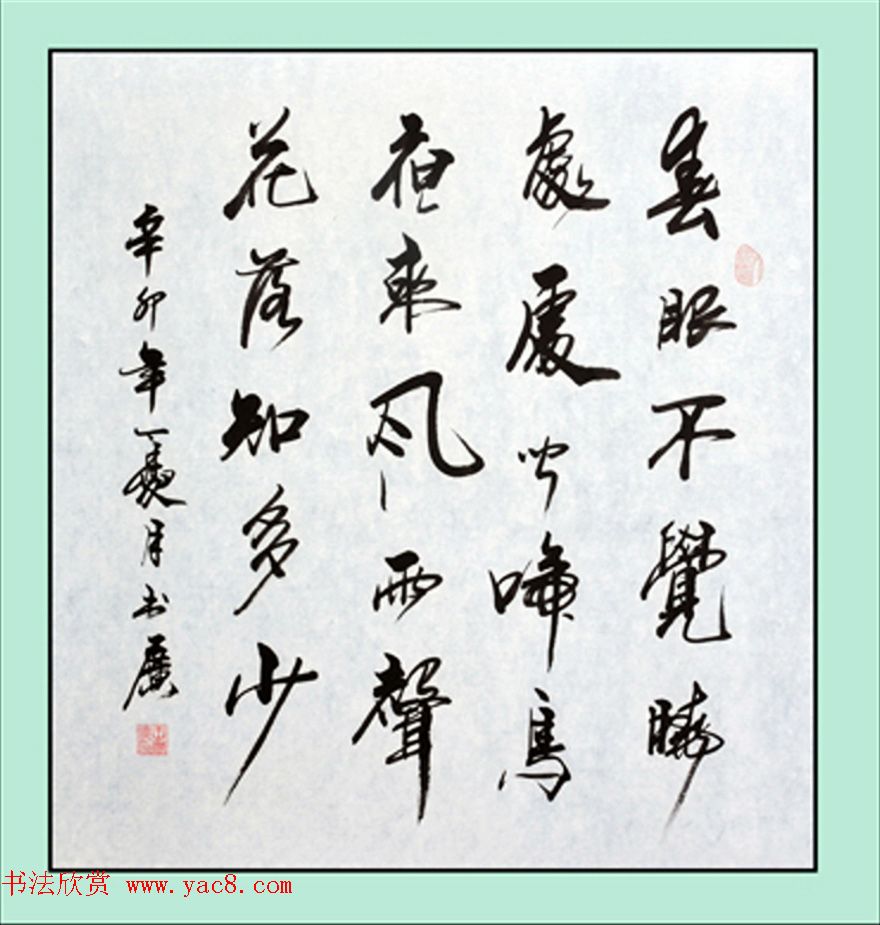 春眠不覺曉
處處聞啼鳥
夜来風雨聲
花落知多少
辛卯年夏月
书法欣赏 www.yac8.com